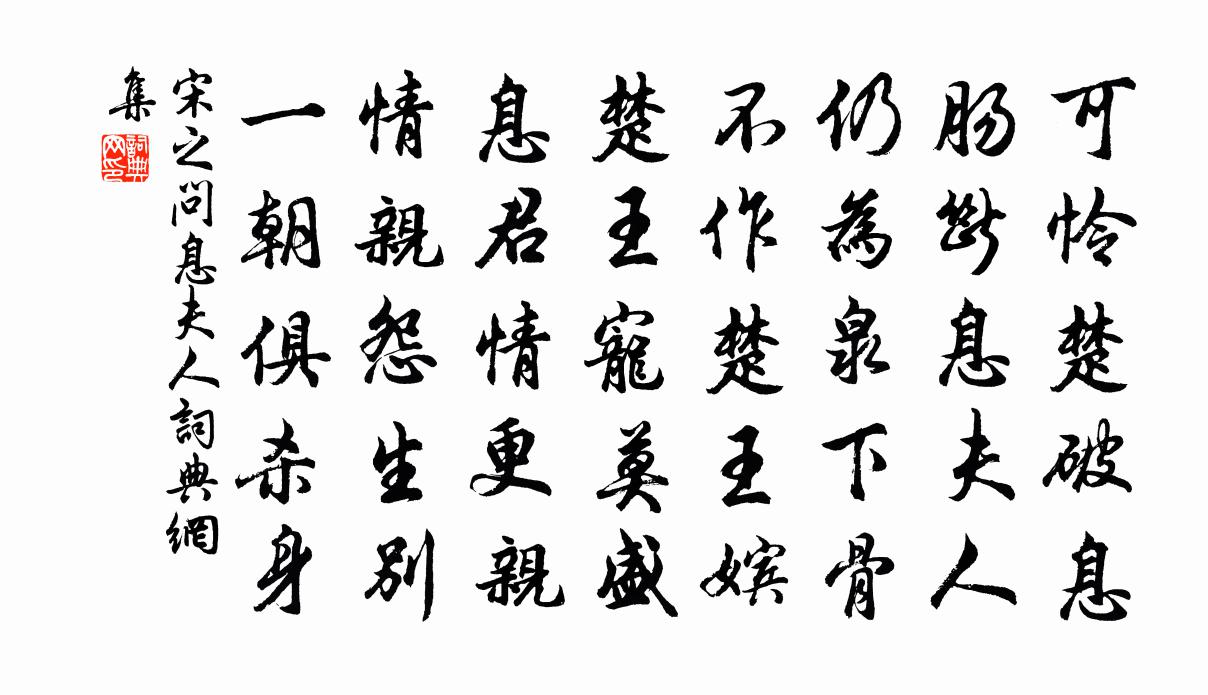 可怜楚破息
肠斷息夫人
仍為泉下骨
不作楚王嫔
楚王寵莫盛
息君情更親
情親怨生别
一朝俱杀身
宋之问息夫人詞典網
集
詞典网印